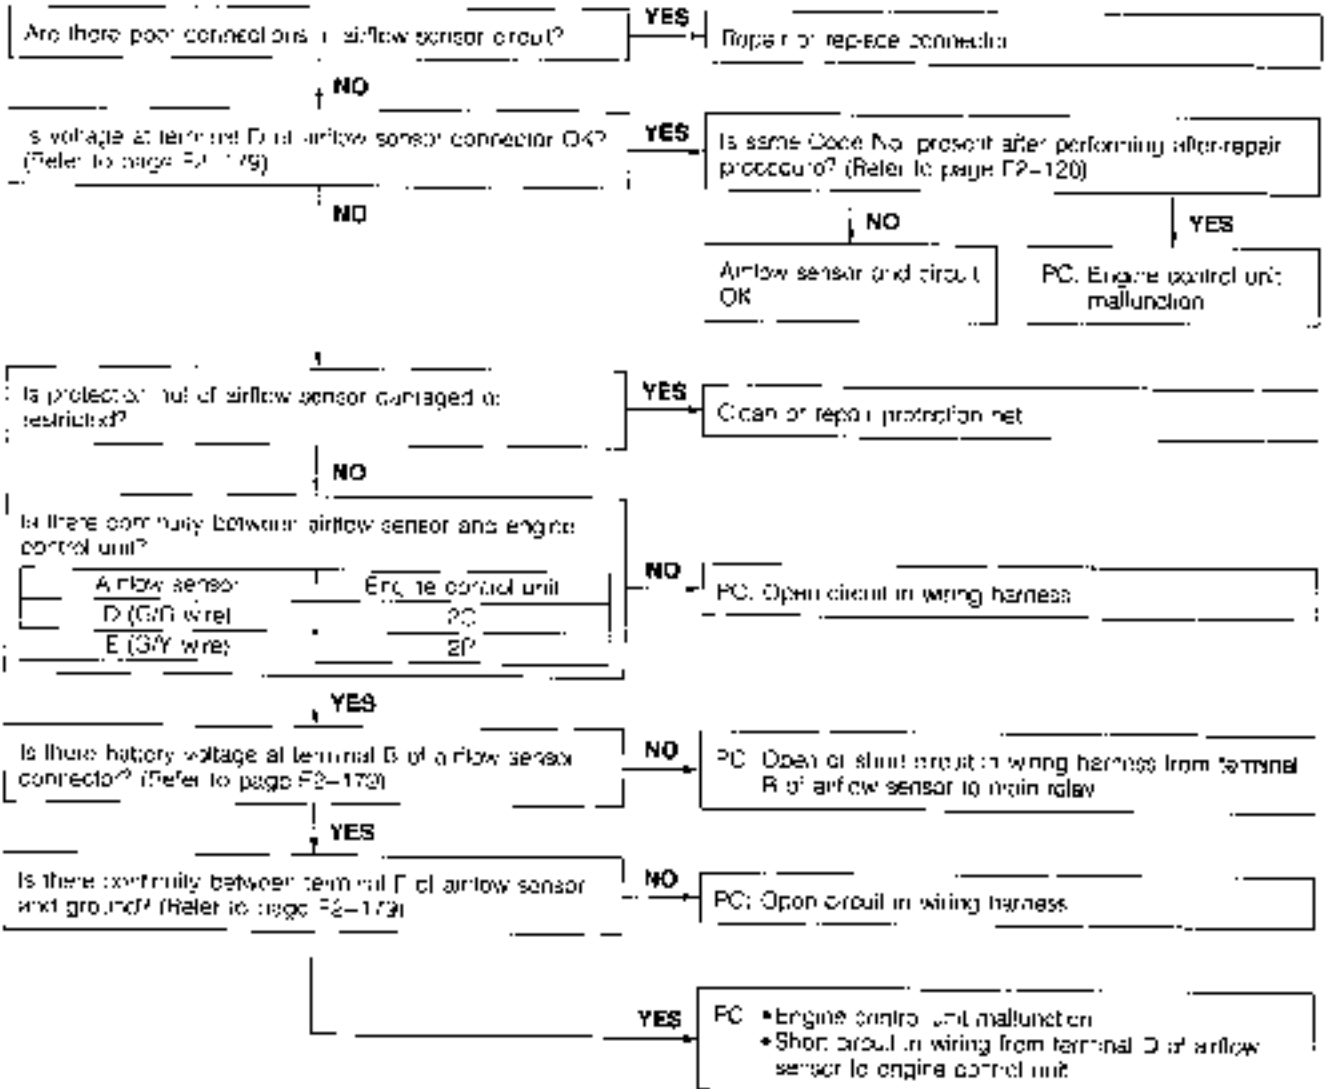 Are there poor connections in airflow sensor circuit?
YES
Repair or replace connector
NO
Is voltage at terminal D of airflow sensor connector OK?
(Refer to page F2–179)
YES
Is same Code No. present after performing after-repair
procedure? (Refer to page F2–120)
NO
NO
YES
Airflow sensor and circuit
OK
PC: Engine control unit
malfunction
Is protection net of airflow sensor damaged or
restricted?
YES
Clean or repair protection net
NO
Is there continuity between airflow sensor and engine
control unit?
Airflow sensor
Engine control unit
D wire)
E (G/Y wire)
NO
PC: Open circuit in wiring harness
YES
Is there battery voltage at terminal B of airflow sensor
connector? (Refer to page F2–179)
NO
PC: Open or short circuit in wiring harness from terminal
B of airflow sensor to main relay
YES
Is there continuity between terminal of airflow sensor
and ground? (Refer to page F2–179)
NO
PC: Open circuit in wiring harness
YES
PC: • Engine control unit malfunction
• Short circuit in wiring from terminal D of airflow
sensor to engine control unit